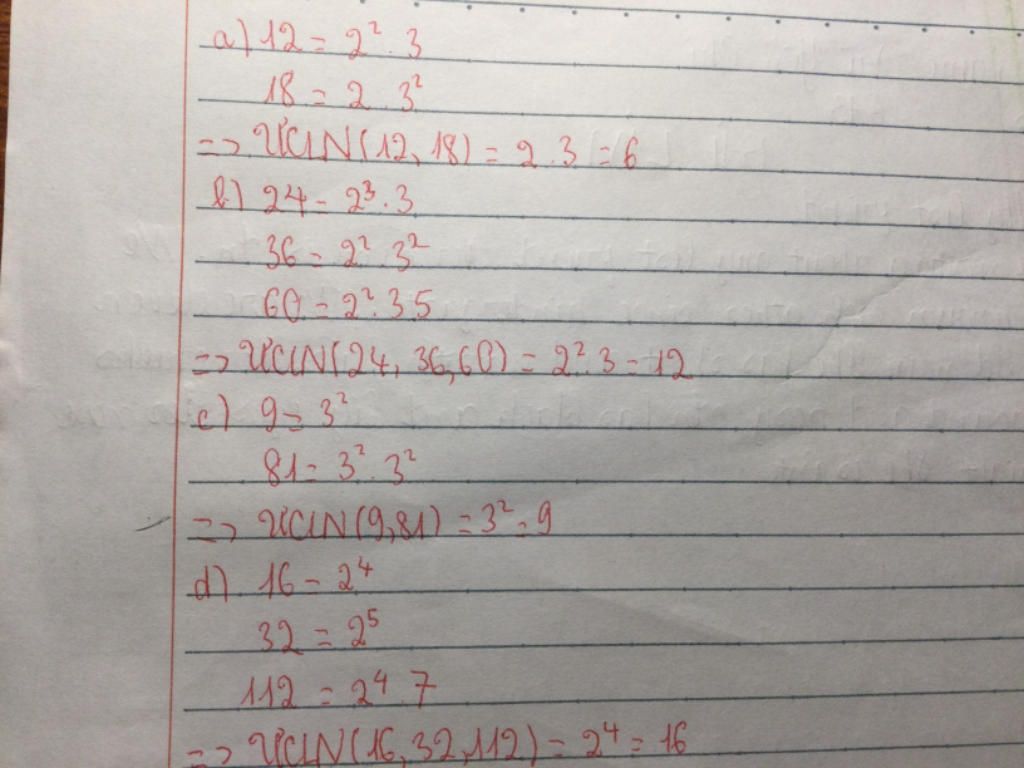 a) 12 = 2². 3
18 = 2 . 3²
=> ƯCLN(12, 18) = 2 . 3 = 6
b) 24 = 2³. 3
36 = 2². 3²
60 = 2². 3 5
=> ƯCLN(24, 36, 60) = 2². 3 = 12
c) 9 = 3²
81 = 3². 3²
=> ƯCLN(9, 81) = 3² = 9
d) 16 = 2⁴
32 = 2⁵
112 = 2⁴. 7
=> ƯCLN(16, 32, 112) = 2⁴ = 16